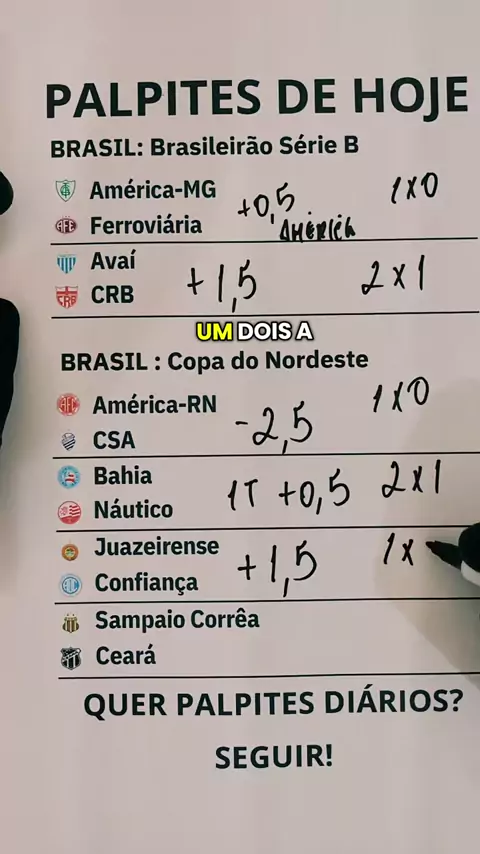 PALPITES DE HOJE
BRASIL: Brasileirão Série B
América-MG
+0,5
1x0
Ferroviária
AMÉRICA
Avaí
CRB
+1,5
2x1
UM DOIS A
BRASIL : Copa do Nordeste
América-RN
CSA
-2,5
1x0
Bahia
Náutico
1T +0,5
2x1
Juazeirense
Confiança
+1,5
1x
Sampaio Corrêa
Ceará
QUER PALPITES DIÁRIOS?
SEGUIR!